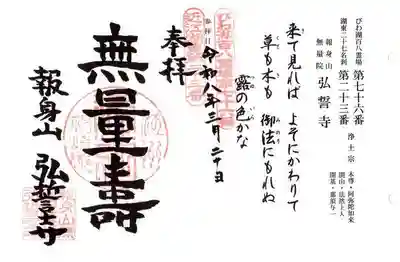 びわ湖百八霊場 第七十六番
湖東二十七名刹 第二十三番
浄土宗
本尊・阿弥陀如来
開山・法然上人
開基・那須与一
報身山
無量院 弘誓寺
来て見れば よそにかわりて
草も木も 御法にもれぬ
露の色かな
参拝日
令和八年三月二十日
奉拝
無量壽
報身山 弘誓寺